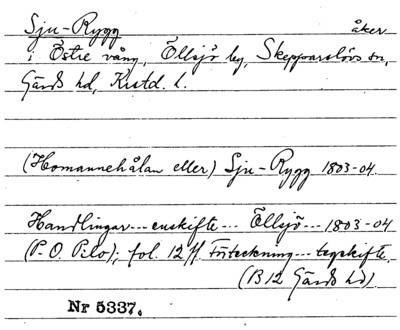 Sju-Rygg åker
i Östre vång, Öllsjö by, Skepparslövs sn,
Gärds hd, Krstd. l.
(Homannehålan eller) Sju-Rygg 1803-04.
Handlingar--- enskifte--- Öllsjö--- 1803-04
(P. O. Pilo); fol. 12 ff. Förteckning--- tegskifte.
(B 12 Gärds hd)
Nr 5337.